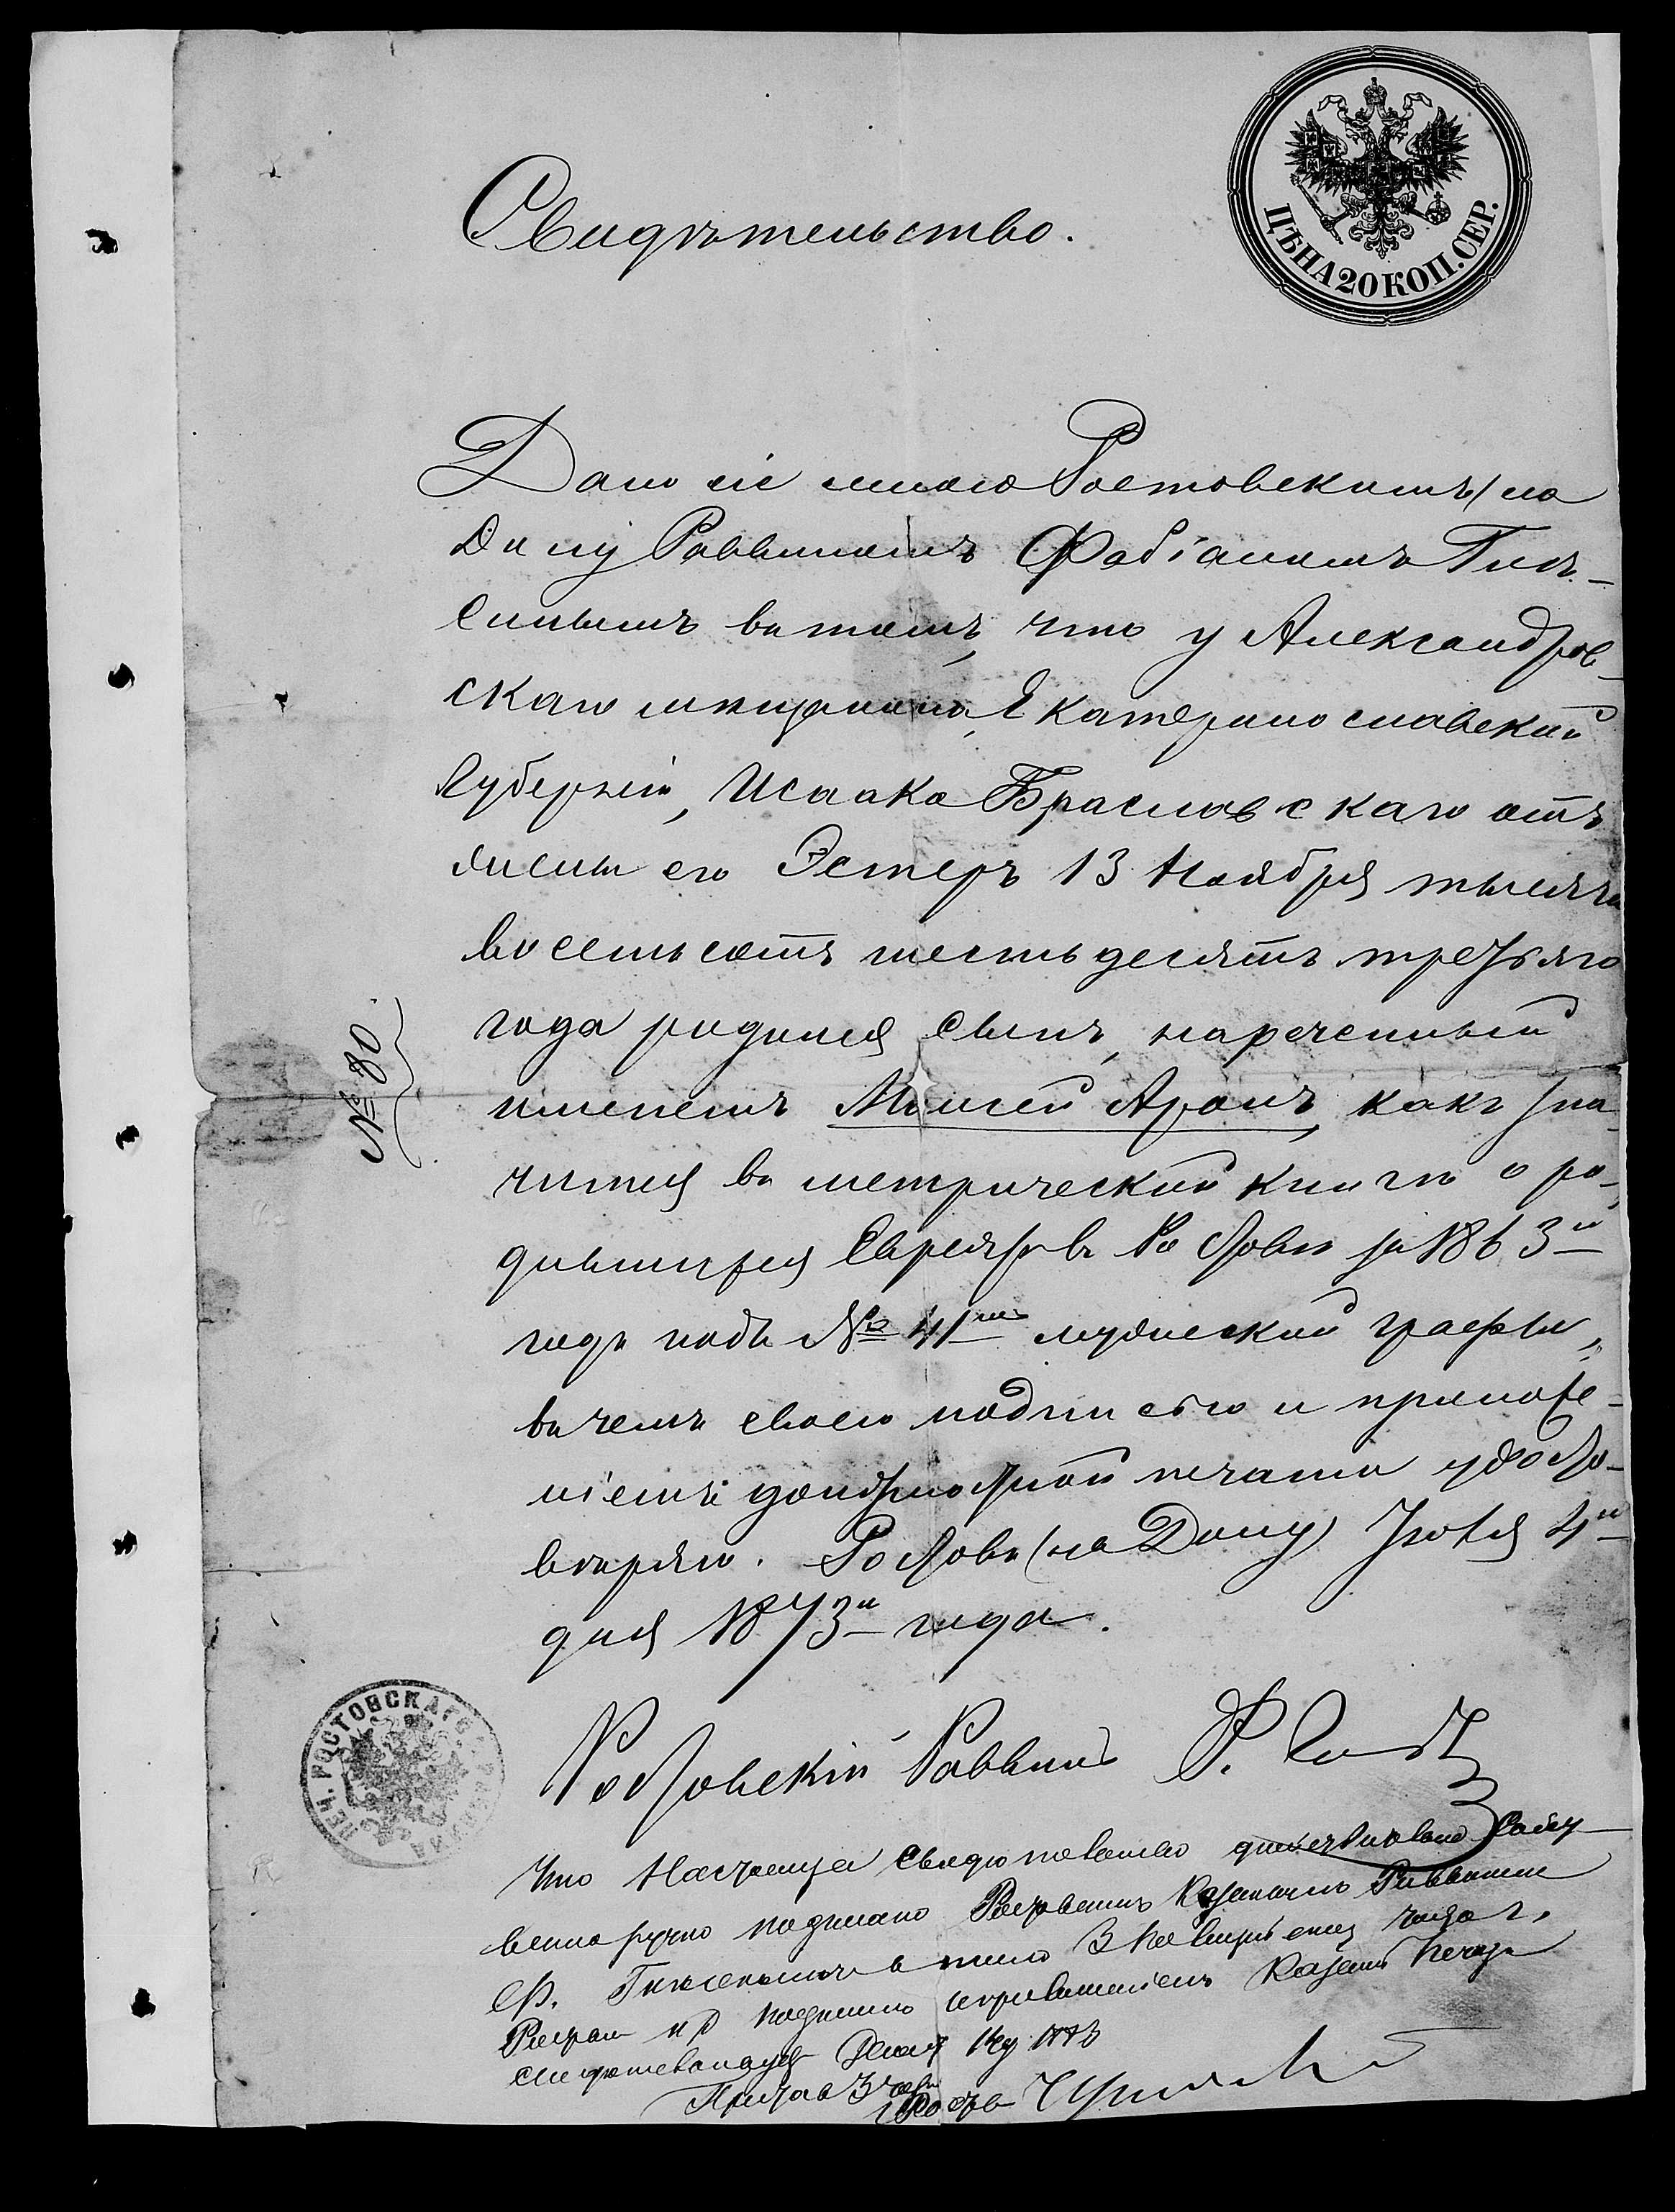 ЦѢНА 20 КОП. СЕР.
Свидѣтельство.
Дано сіе мною Ростовскимъ (на
Дону) Раввиномъ Фабіаномъ Гнѣ-
синымъ въ томъ, что у Александров-
скаго мѣщанина, Екатеринославской
Губерніи, Исаака Браславскаго отъ
жены его Эстеръ 13 Ноября тысяча
восемьсотъ шестьдесятъ третьяго
года родился сынъ, нареченный
именемъ Моисей Аронъ, какъ зна-
чится въ метрической книгѣ о ро-
дившихся Евреяхъ въ Ростовѣ за 1863й
годъ подъ № 41мъ мужеской графы,
въ чемъ своею подписью и приложе-
ніемъ должностной печати удосто-
вѣряю. Ростовъ (на Дону) Іюля 4го
дня 1873го года.
№ 80.
Ростовскій Раввинъ Ф.
ПЕЧ. РОСТОВСКАГО РАВВИНА
Что Настоящее свидетельство действительно собст
венноручно подписано Ростовскимъ Казеннымъ Раввиномъ
Ф. Гнесенымъ в томъ 3 части г.
Ростова н/Д подписью с приложеніемъ Казенной Печати
свидетельствуетъ 1873
Приставъ 3 части
г. Ростова